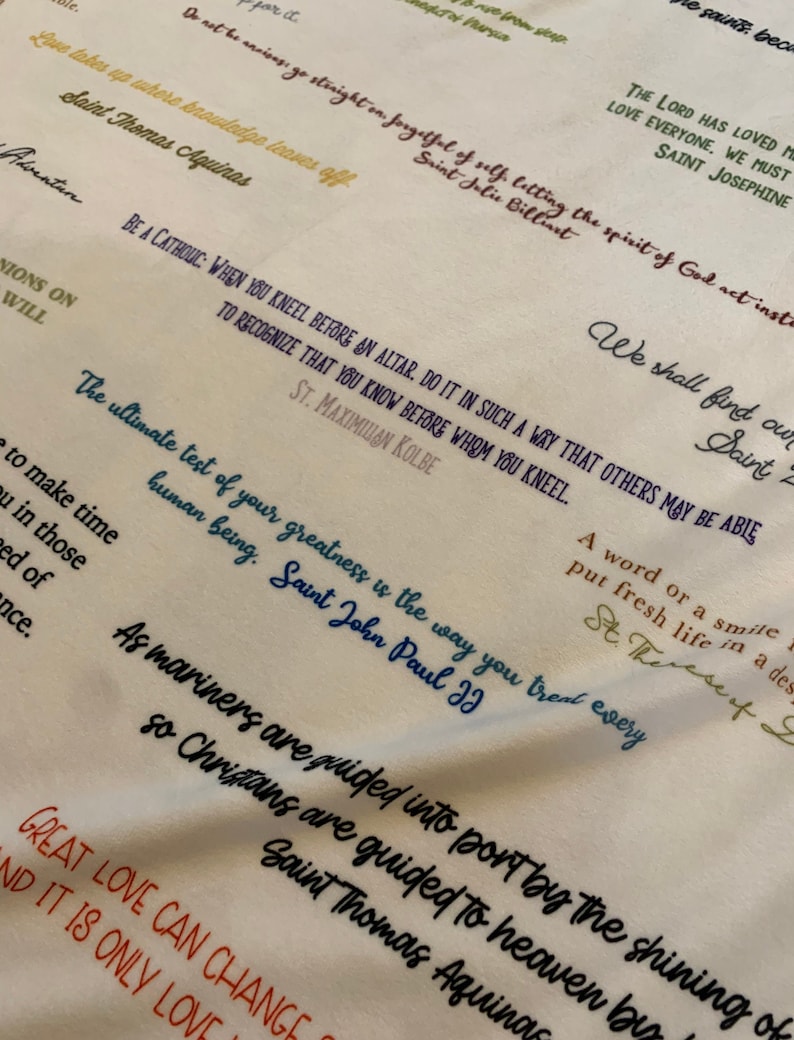 for it.
to rise from sleep.
the saints,
Do not be anxious; go straight on, forgetful of self, letting the spirit of God act
Saint Julie Billiart
Love takes up where knowledge leaves off.
Saint Thomas Aquinas
The Lord has loved
love everyone, we must
Saint Josephine
Adventure
Be a Catholic: When you kneel before an altar, do it in such a way that others may be able
to recognize that you know before whom you kneel.
St. Maximilian Kolbe
NIONS ON
WILL
We shall find our
Saint
The ultimate test of your greatness is the way you treat every
human being. Saint John Paul II
to make time
in those
of
A word or a smile
put fresh life in a
St. Therese of
As mariners are guided into port by the shining of
so Christians are guided to heaven by
Saint Thomas Aquinas
Great love can change
it is only love